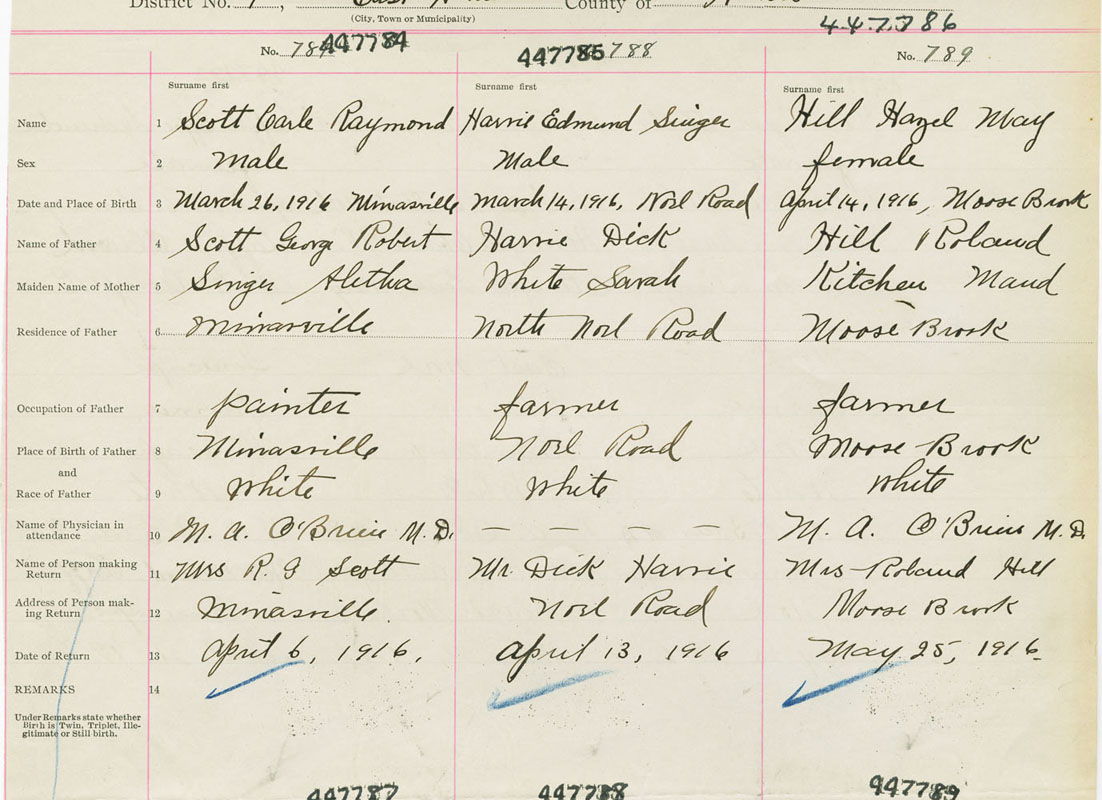 District No. County of
(City, Town or Municipality)
447786
No. 447784 447785 788 No. 789
Surname first Surname first Surname first
Name 1 Scott Carle Raymond Harrie Edmund Singer Hill Hazel May
Sex 2 Male Male female
Date and Place of Birth 3 March 26, 1916 Minasville March 14, 1916, Noel Road April 14, 1916, Moose Brook
Name of Father 4 Scott George Robert Harrie Dick Hill Roland
Maiden Name of Mother 5 Singer Aletha White Sarah Kitchen Maud
Residence of Father 6 Minasville North Noel Road Moose Brook
Occupation of Father 7 painter farmer farmer
Place of Birth of Father 8 Minasville Noel Road Moose Brook
and
Race of Father 9 White White White
Name of Physician in
attendance 10 M. A. O'Brien M.D. — — — — M. A. O'Brien M.D.
Name of Person making
Return 11 Mrs R. G Scott Mr. Dick Harrie Mrs Roland Hill
Address of Person mak-
ing Return 12 Minasville. Noel Road Moose Brook
Date of Return 13 April 6, 1916. April 13, 1916 May 25, 1916.
REMARKS 14
Under Remarks state whether
Birth is Twin, Triplet, Ille-
gitimate or Still-birth.
447787 447788 447789